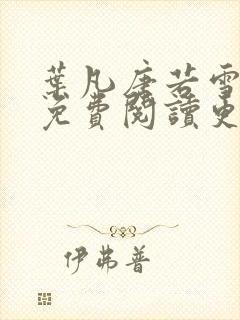 葉凡唐若雪
免費閱讀更
伊弗普